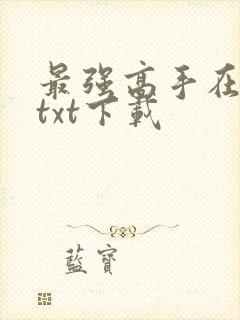 最强高手在
txt下載
藍寶